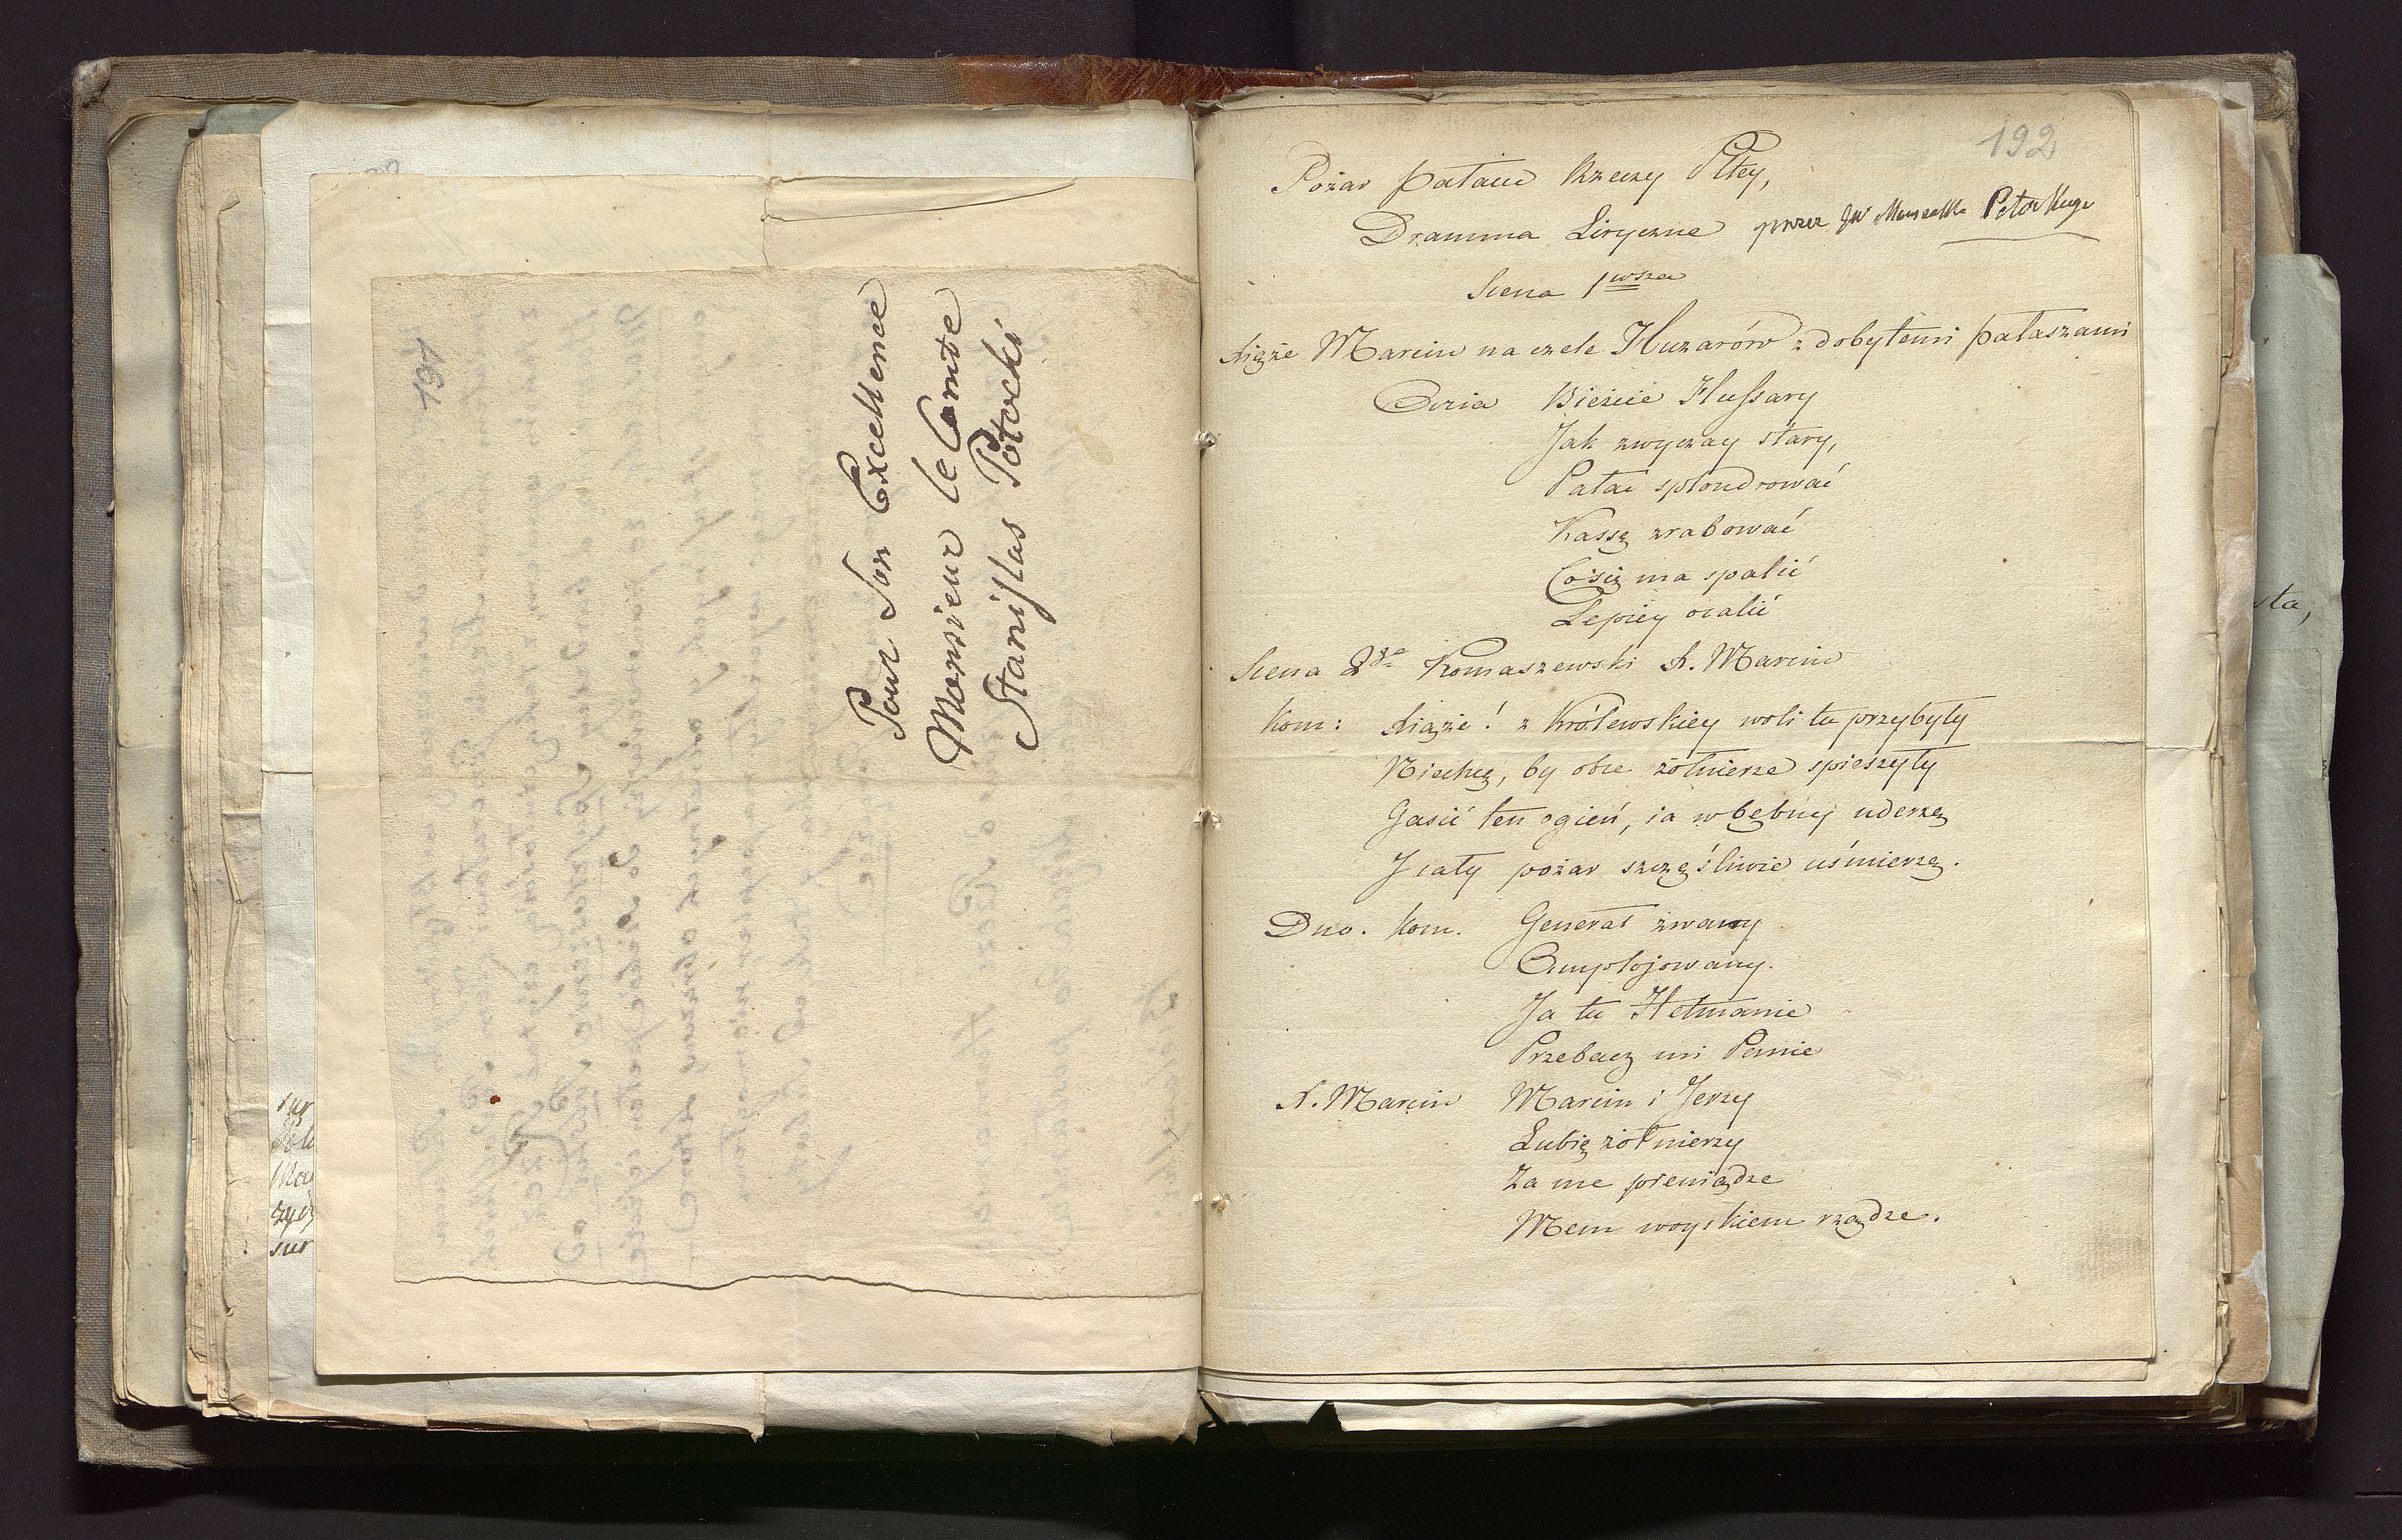 191
Pour Son Excellence
Monsieur le Comte
Stanislas Potocki
sur
192
Pożar pałacu Rzeczy Pltey,
Dramma Liryczne przez JW Marszałka Potockiego
Scena 1wsza
Xiąże Marcin na czele Huzarów z dobytemi pałaszami
Aria Bieżcie Hussary
Jak zwyczay stary,
Pałac splondrować
Kassę zrabować
Co się ma spalić
Lepiey ocalić
Scena 2ga Komaszewski X. Marcin
Kom: Xiąże! z Królewskiey woli tu przybyły
Niechcę, by obce żołnierze spieszyły
Gasić ten ogień, ia w bębny uderzę
J cały pożar szczęśliwie uśmierzę.
Duo. Kom. Generał zwany
Amplojowany.
Ja tu Hetmanie
Przebacz mi Panie
X. Marcin Marcin i Jerzy
Lubię żołnierzy
Za me pieniądze
Mem woyskiem rządze.
sta,